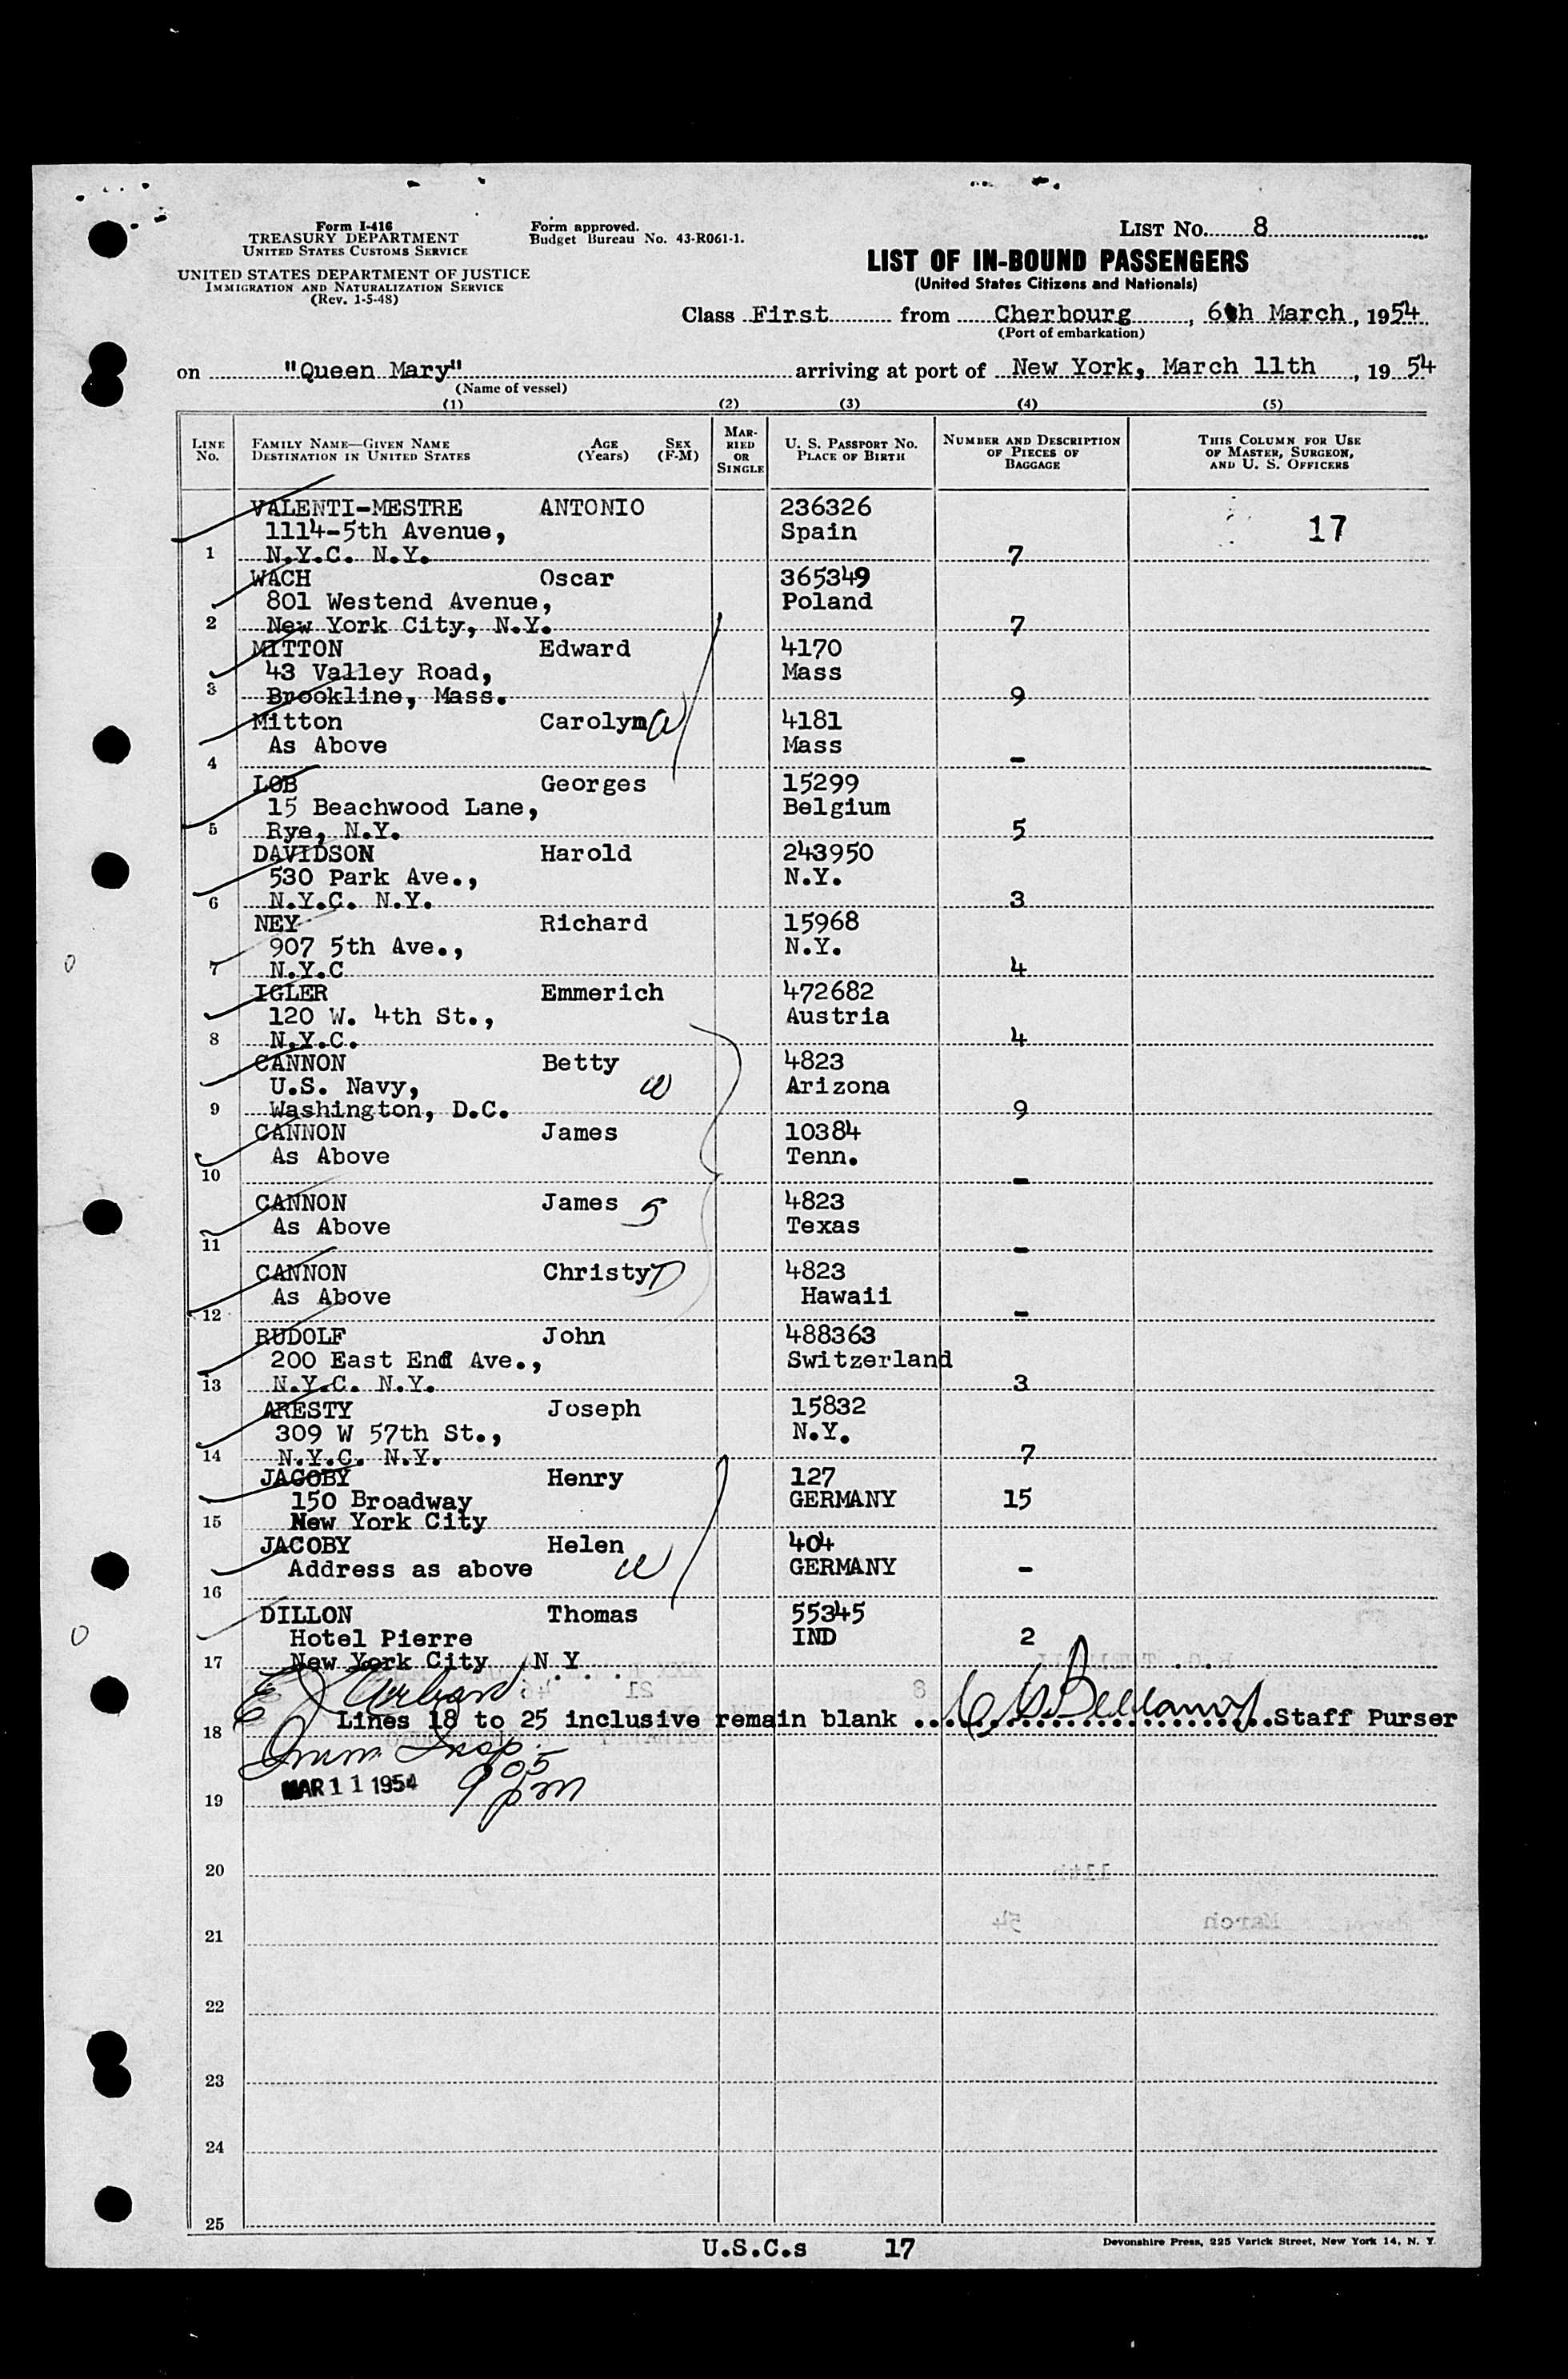 Form I-416
TREASURY DEPARTMENT
UNITED STATES CUSTOMS SERVICE
UNITED STATES DEPARTMENT OF JUSTICE
IMMIGRATION AND NATURALIZATION SERVICE
(Rev. 1-5-48)
Form approved.
Budget Bureau No. 43-R061-1.
LIST No. 8
LIST OF IN-BOUND PASSENGERS
(United States Citizens and Nationals)
Class First from Cherbourg, 6th March, 1954
(Port of embarkation)
on "Queen Mary" arriving at port of New York, March 11th, 1954
(Name of vessel)
(1) (2) (3) (4) (5)
LINE No.
FAMILY NAME—GIVEN NAME
DESTINATION IN UNITED STATES
AGE (Years)
SEX (F-M)
MARRIED OR SINGLE
U. S. PASSPORT NO.
PLACE OF BIRTH
NUMBER AND DESCRIPTION OF PIECES OF BAGGAGE
THIS COLUMN FOR USE OF MASTER, SURGEON, AND U. S. OFFICERS
VALENTI-MESTRE ANTONIO 236326
1114-5th Avenue, Spain 17
1 N.Y.C. N.Y. 7
WACH Oscar 365349
801 Westend Avenue, Poland
2 New York City, N.Y. 7
MITTON Edward 4170
43 Valley Road, Mass
3 Brookline, Mass. 9
Mitton Carolyn W 4181
As Above Mass
4 -
LOB Georges 15299
15 Beachwood Lane, Belgium
5 Rye, N.Y. 5
DAVIDSON Harold 243950
530 Park Ave., N.Y.
6 N.Y.C. N.Y. 3
NEY Richard 15968
907 5th Ave., N.Y.
7 N.Y.C 4
IGLER Emmerich 472682
120 W. 4th St., Austria
8 N.Y.C. 4
CANNON Betty 4823
U.S. Navy, W Arizona
9 Washington, D.C. 9
CANNON James 10384
As Above Tenn.
10 -
CANNON James S 4823
As Above Texas
11 -
CANNON Christy D 4823
As Above Hawaii
12 -
RUDOLF John 488363
200 East End Ave., Switzerland
13 N.Y.C. N.Y. 3
ARESTY Joseph 15832
309 W 57th St., N.Y.
14 N.Y.C. N.Y. 7
JACOBY Henry 127
150 Broadway GERMANY 15
15 New York City
JACOBY Helen 404
Address as above W GERMANY -
16
DILLON Thomas 55345
Hotel Pierre IND 2
17 New York City N.Y.
E J
Lines 18 to 25 inclusive remain blank Staff Purser
18 Imm Insp.
MAR 11 1954 9 05 pm
19
20
21
22
23
24
25
U.S.C.s 17
Devonshire Press, 225 Varick Street, New York 14, N. Y.